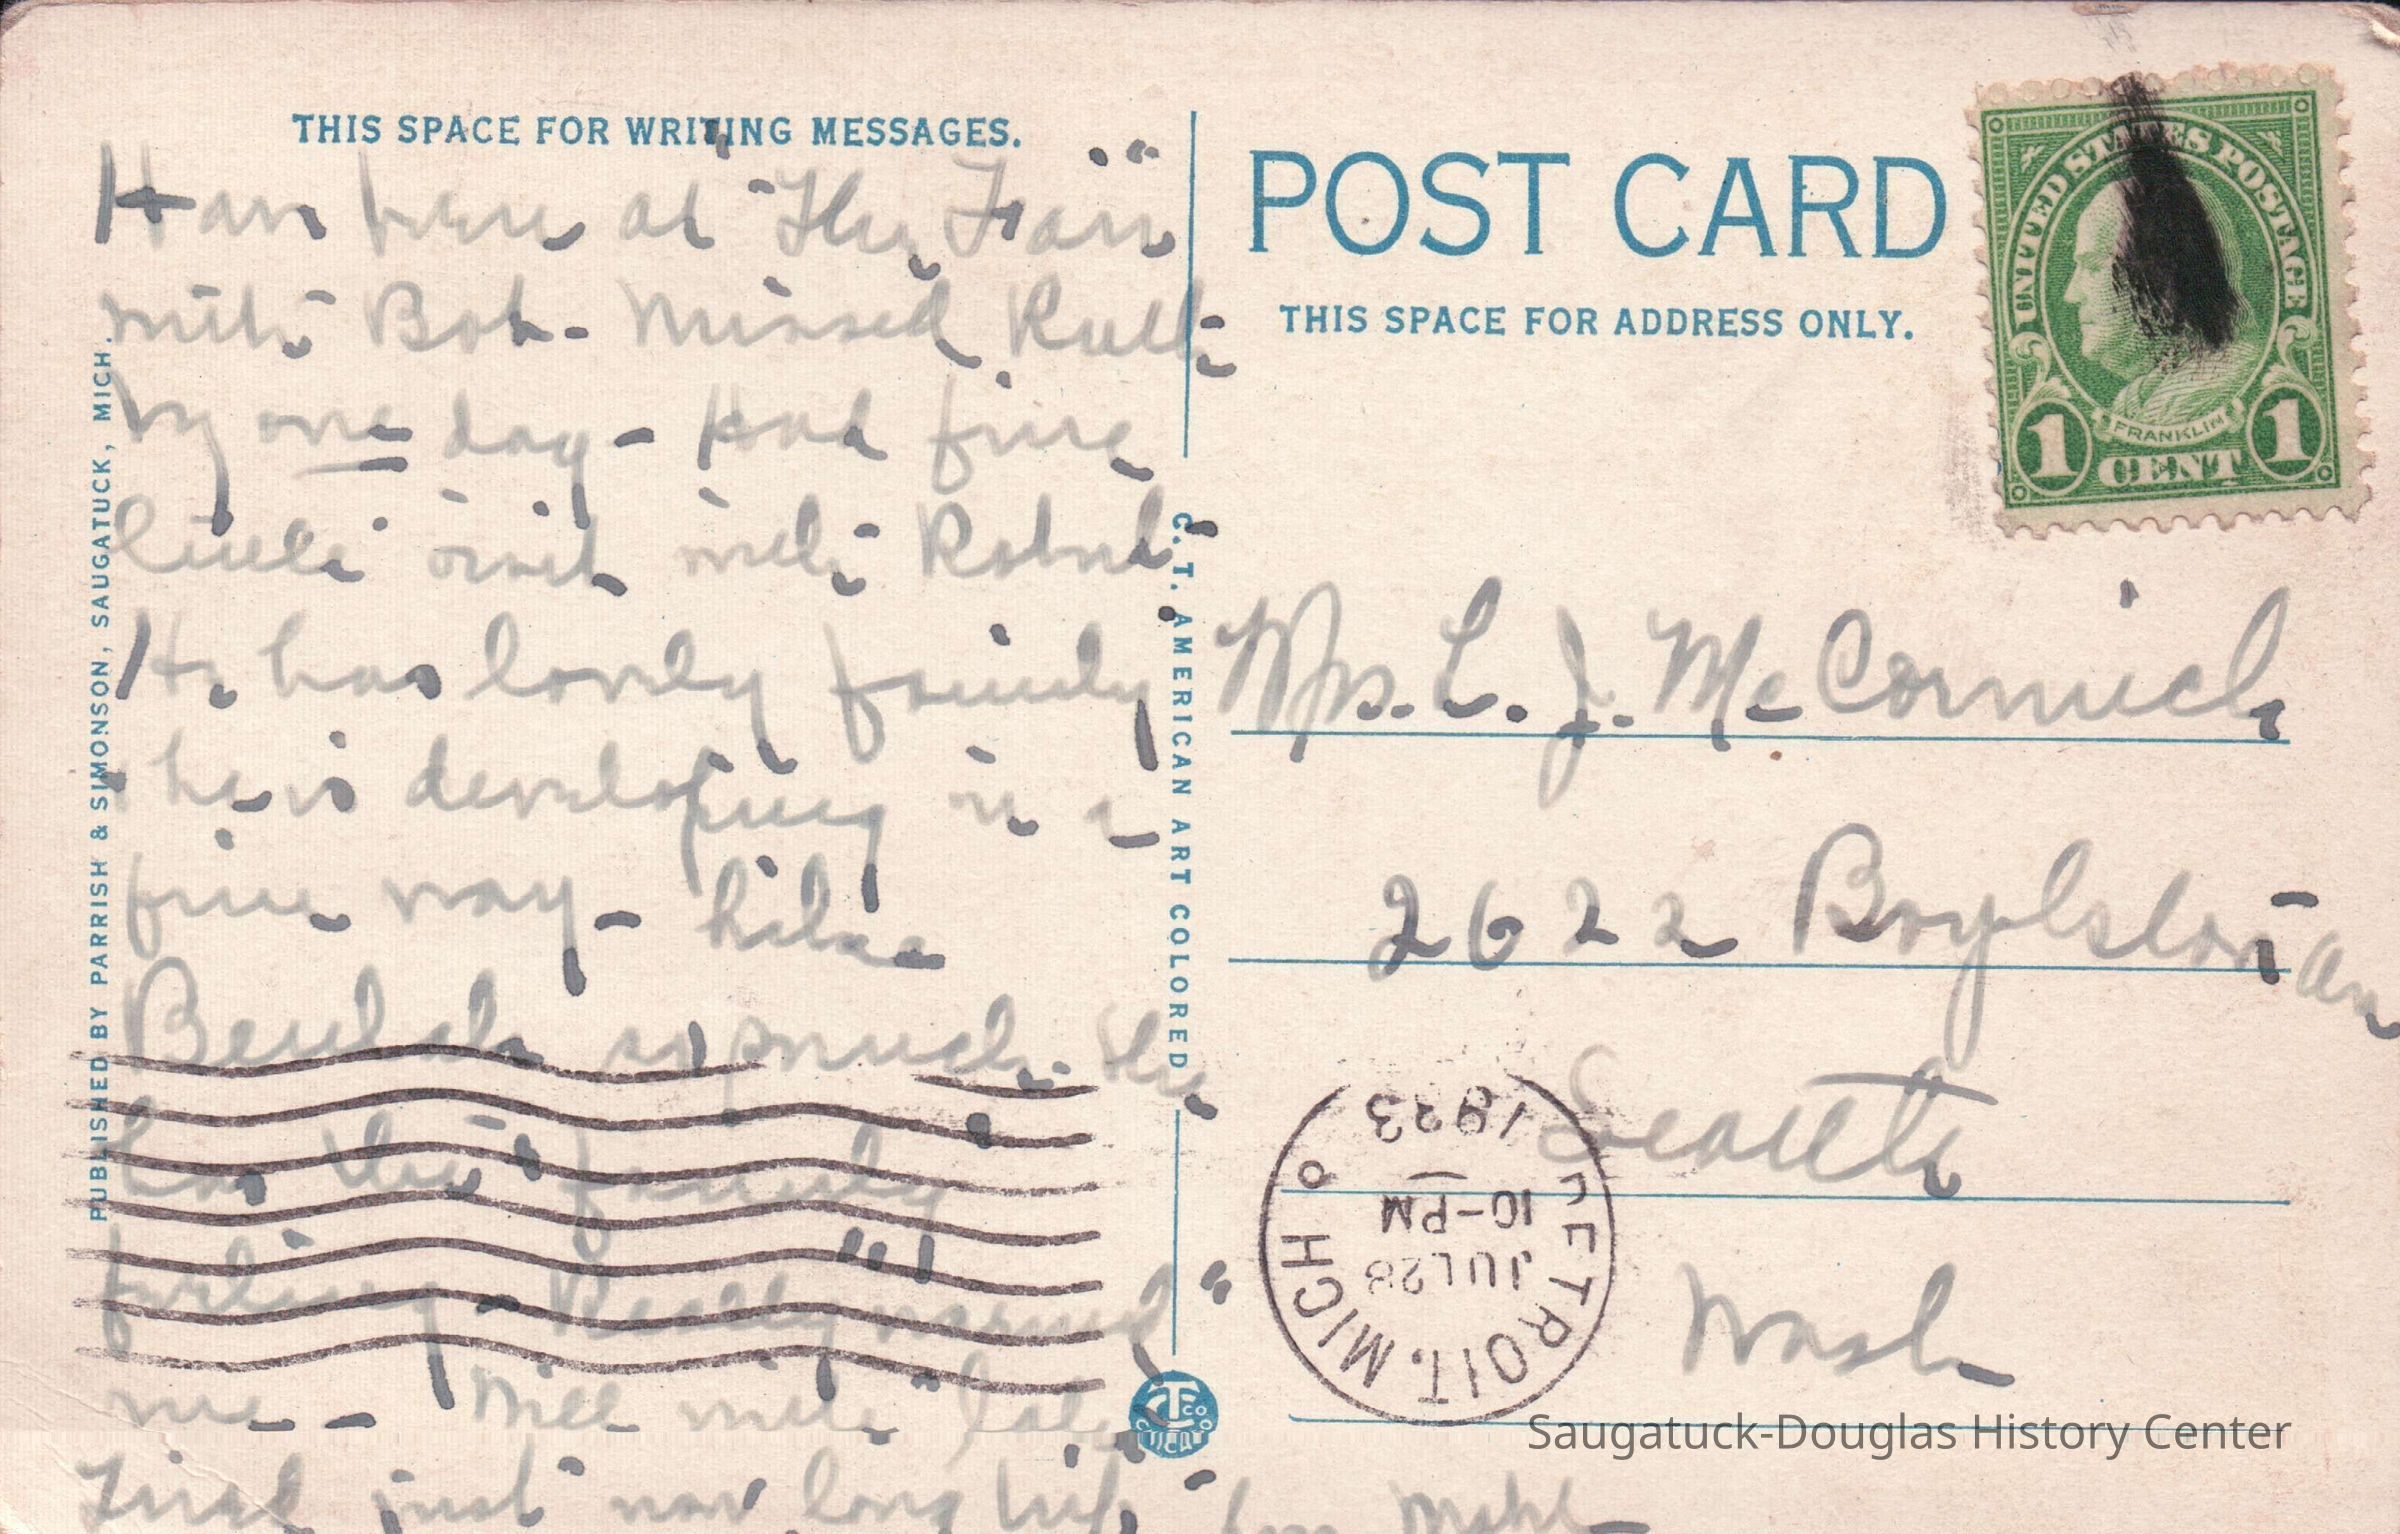 THIS SPACE FOR WRITING MESSAGES.
Have been at "The Farm"
with Bob - Missed Ruth
by one day - Had fine
little visit with Robert.
He has lovely family
& he is developing in a
fine way - Like
Beulah so much. She
has the "family
feeling" - Really
me - Will write later
Tired just now long trip
PUBLISHED BY PARRISH & SIMONSON, SAUGATUCK, MICH.
C. T. AMERICAN ART COLORED
POST CARD
THIS SPACE FOR ADDRESS ONLY.
UNITED STATES POSTAGE
FRANKLIN
1 CENT 1
Mrs. L. J. McCormick
2622 Boylston Av
Seattle
Wash
DETROIT, MICH
JUL 28
10-PM
1923
Saugatuck-Douglas History Center